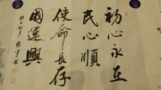 初心永在
民心順
使命長存
國運興